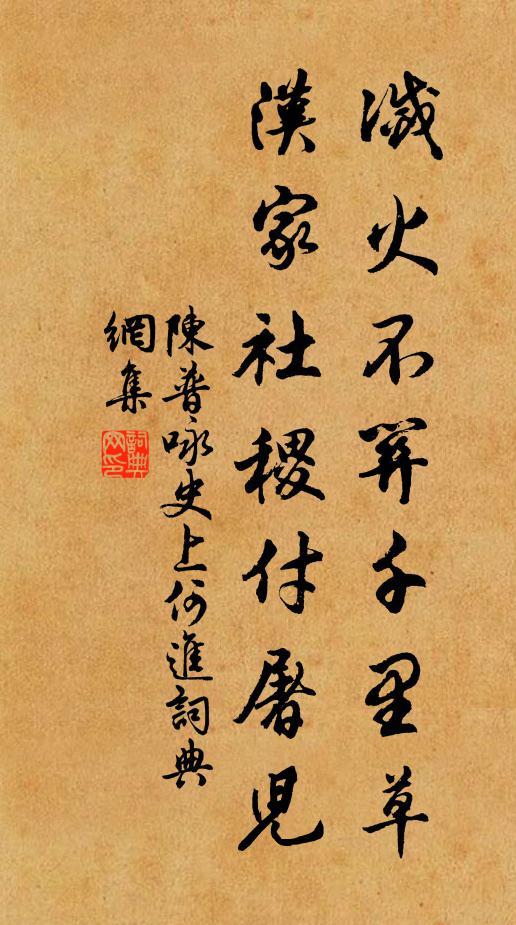 滅火不算千里草
漢家社稷付屠兒
陳普咏史上何進詞典
網集
詞典
網印